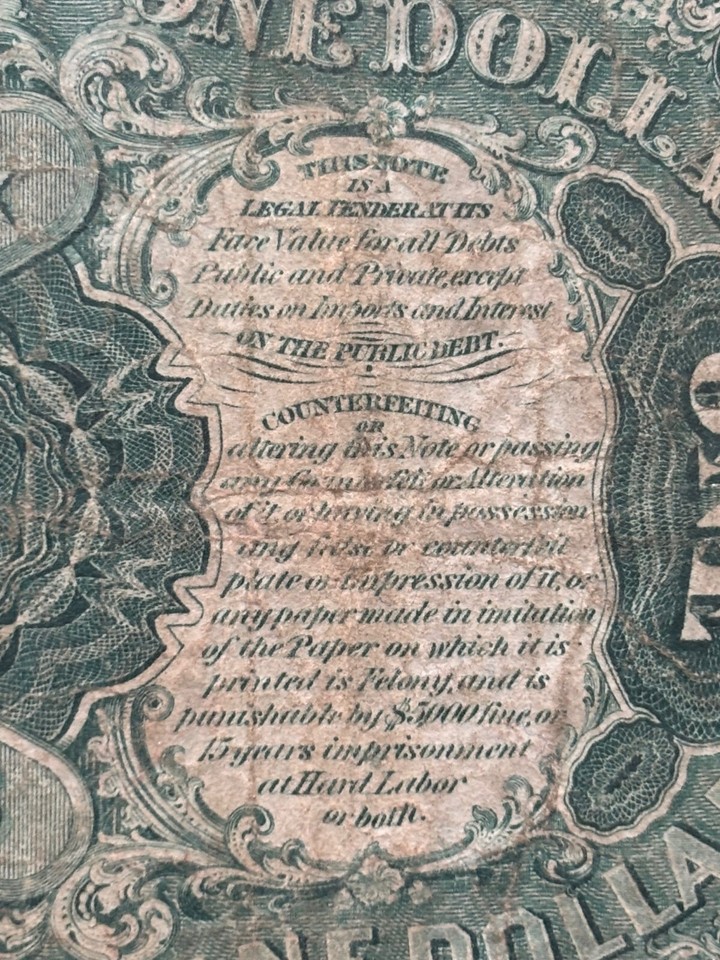 ONE DOLLA
THIS NOTE
IS A
LEGAL TENDER AT ITS
Face Value for all Debts
Public and Private, except
Duties on Imports and Interest
ON THE PUBLIC DEBT.
COUNTERFEITING
OR
altering this Note or passing
any Counterfeit or Alteration
of it, or having in possession
any false or counterfeit
plate or impression of it, or
any paper made in imitation
of the Paper on which it is
printed is Felony, and is
punishable by $5000 fine, or
15 years imprisonment
at Hard Labor
or both.
ONE
NE DOLLA